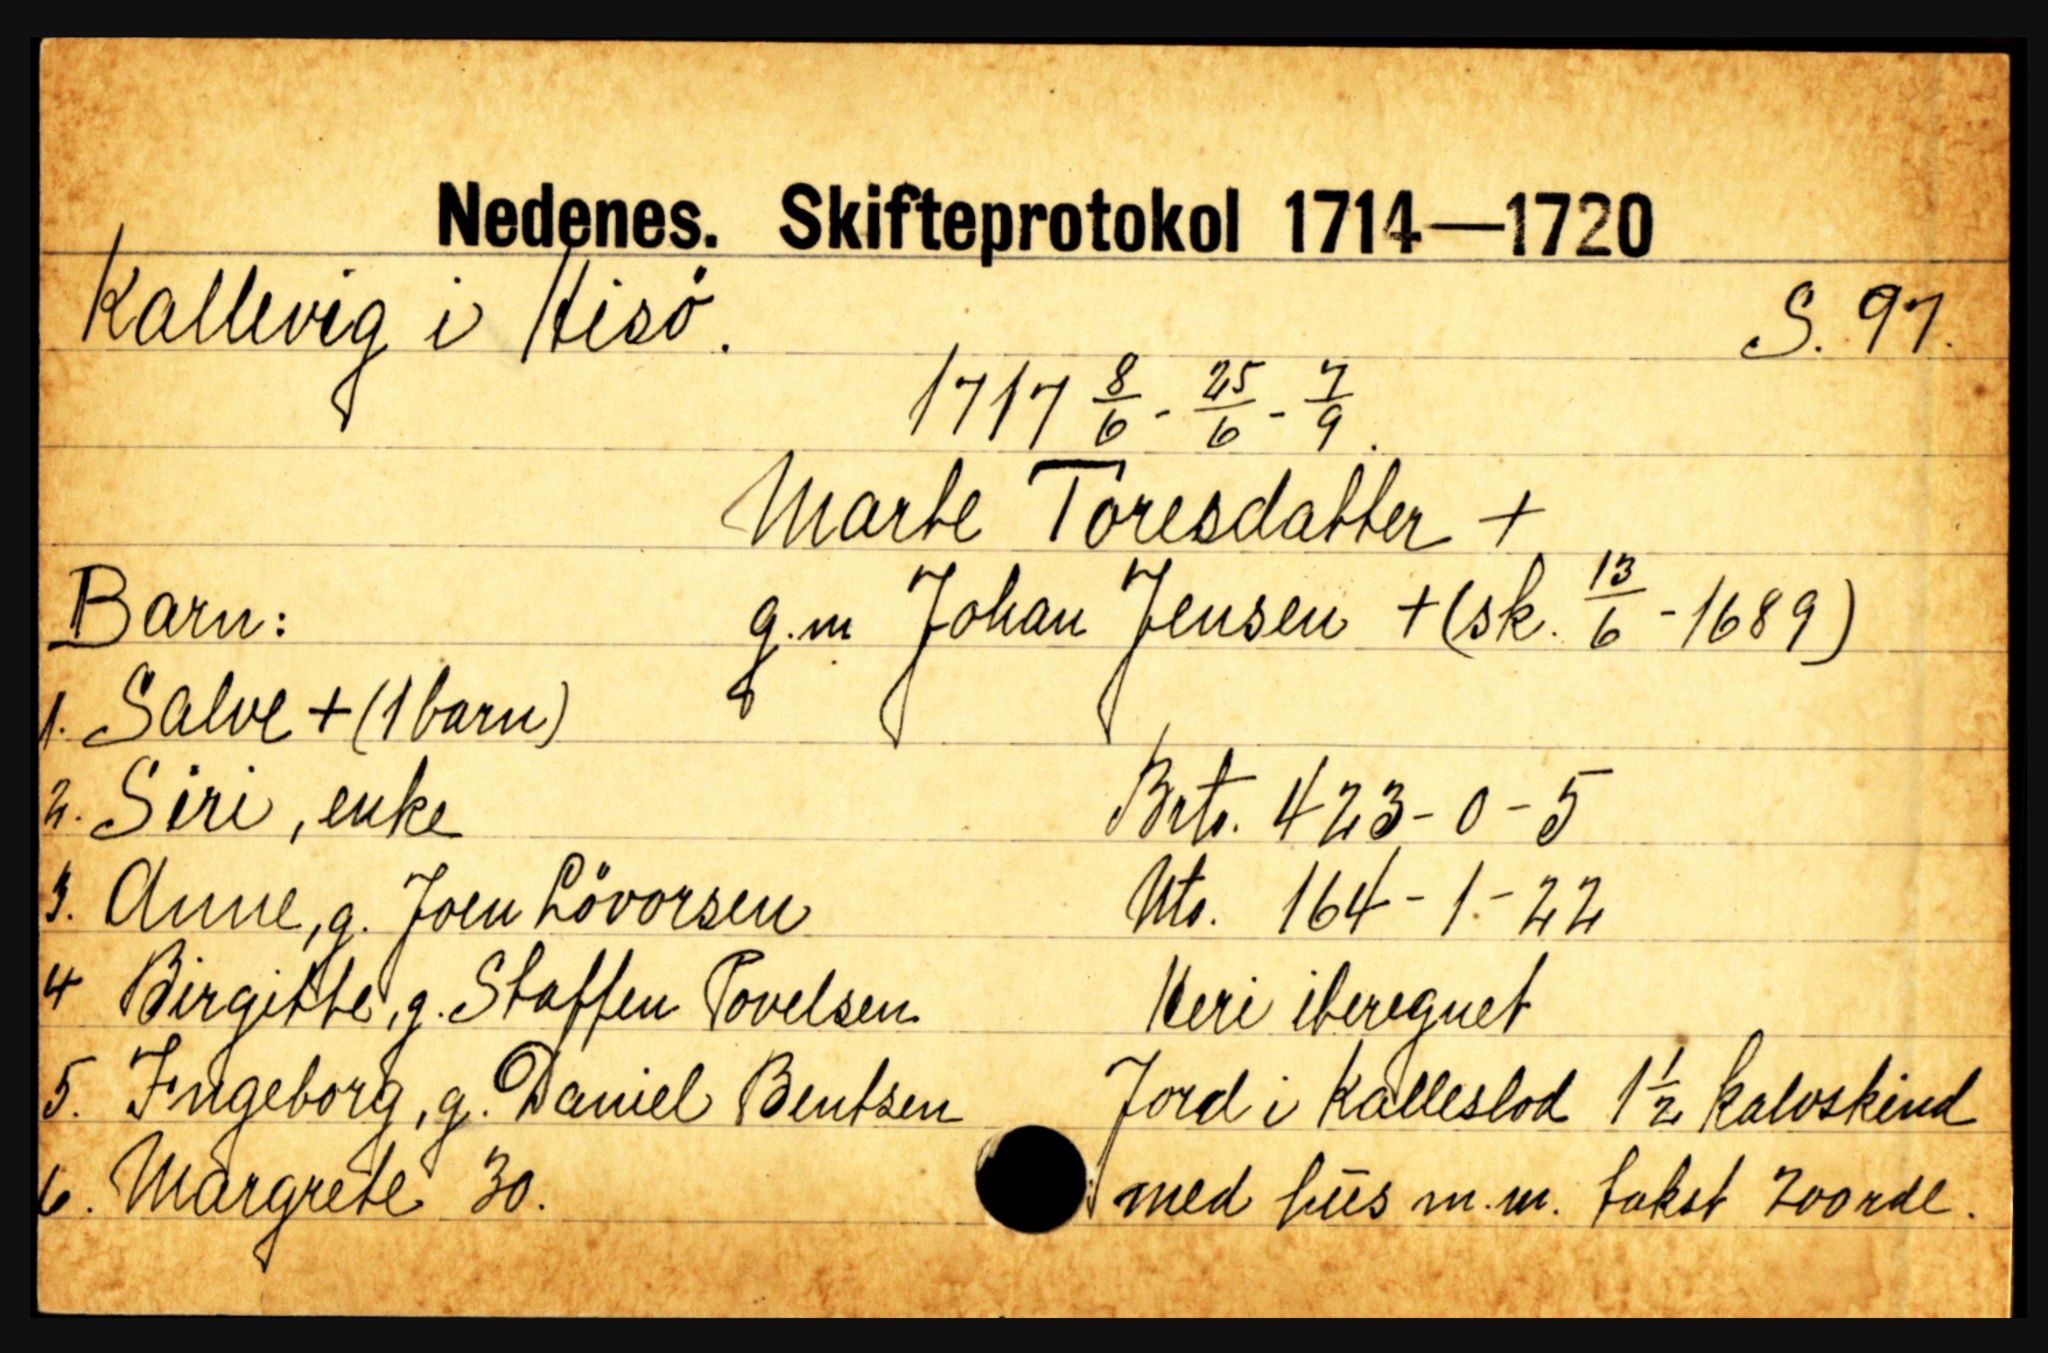 Nedenes. Skifteprotokol 1714—1720
Kallevig i Hisö. S. 97.
1717 8/6 - 25/6 - 7/9.
Marte Toresdatter +
Barn: g.m Johan Jensen + (sk. 13/6 - 1689)
1. Salve + (1 barn)
2. Siri, enke Brto. 423 - 0 - 5
3. Anne, g. Joen Lövorsen Nto. 164 - 1 - 22
4 Birgitte, g. Staffen Povelsen Heri iberegnet
5. Ingeborg, g. Daniel Bentsen Jord i Kalleslod 1 1/2 kalvskind
6. Margrete 30. med hus m.m. takst 200 rdl.